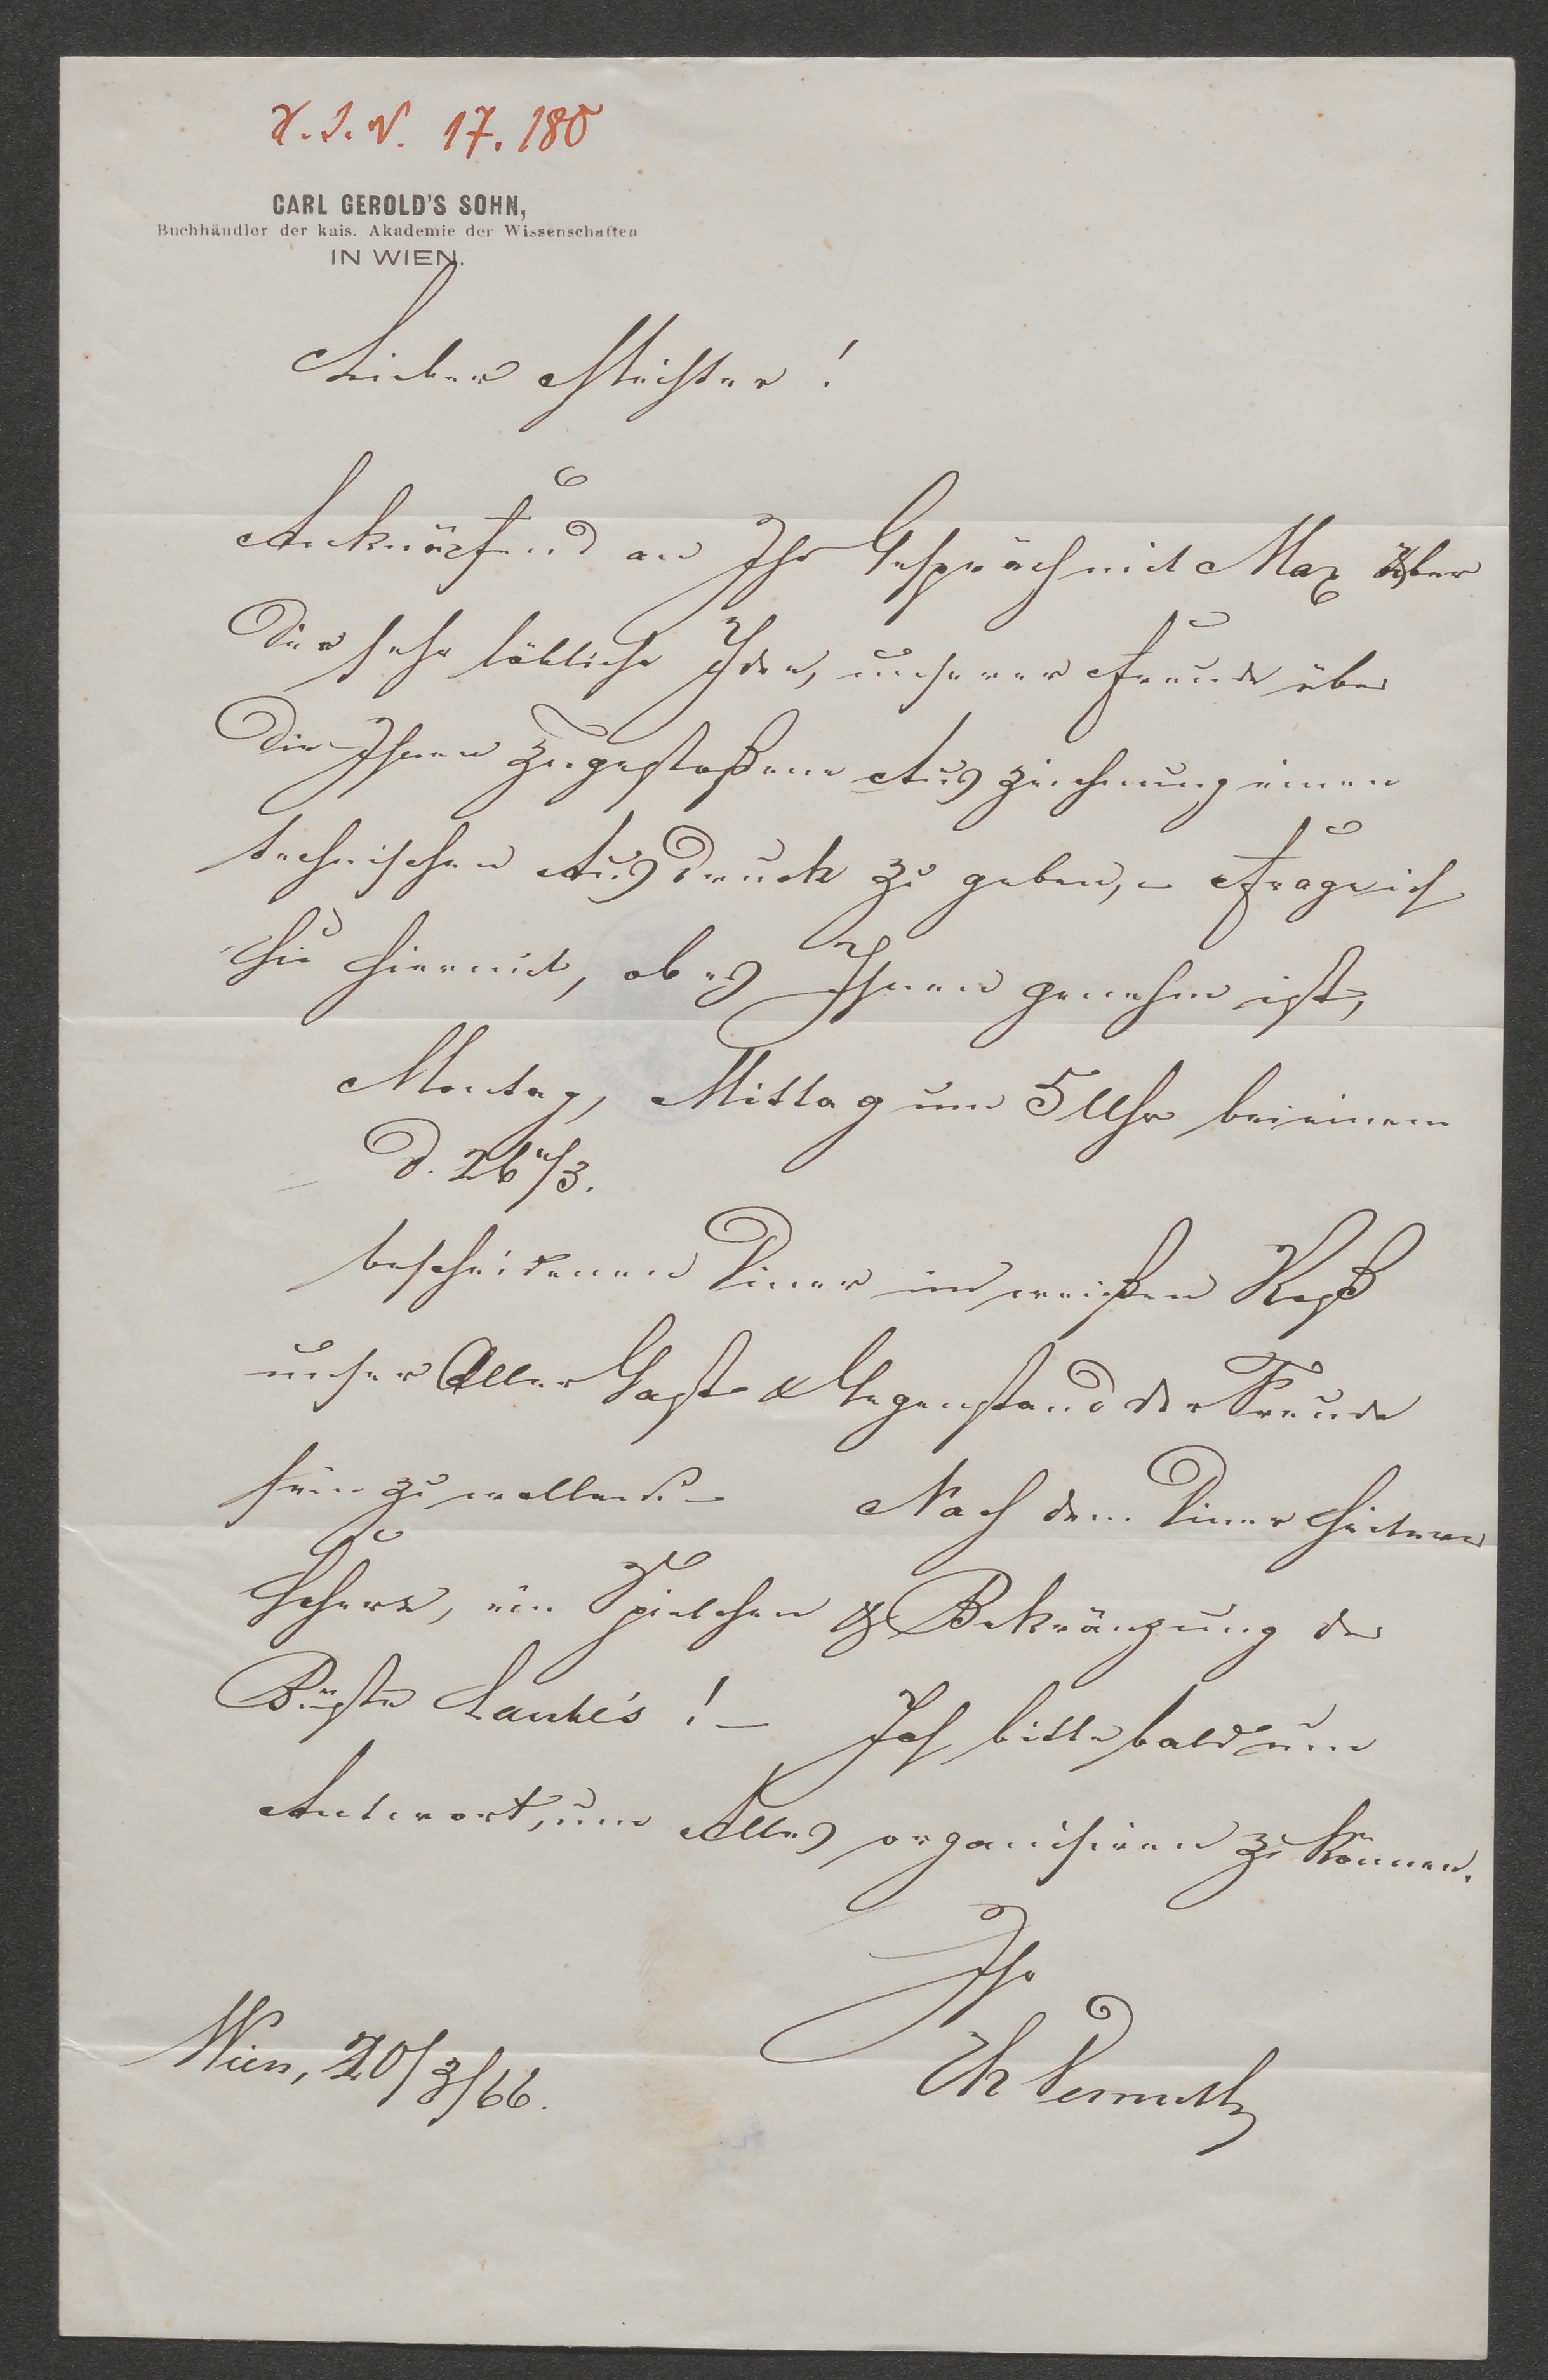 H.I.N. 17.180
CARL GEROLD'S SOHN,
Buchhändler der kais. Akademie der Wissenschaften
IN WIEN.
Lieber Meister!
Anknüpfend an Ihr Gespräch mit Max über
die sehr löbliche Idee, unserer Freude über
die Ihnen zugestoßene Auszeichnung einen
technischen Ausdruck zu geben, – frage ich
Sie hiermit, ob es Ihnen genehm ist,
Montag, Mittag um 5 Uhr bei einem
d. 26"/3.
bescheidenen Diner im weißen Roß
unser Aller Gast & Gegenstand der Freude
sein zu wollen? – Nach dem Diner heiterer
Scherz, ein Spielchen & Bekränzung der
Büste Laube's! – Ich bitte bald um
Antwort, um Alles organisiren zu können.
Ihr
Wien, 20/3/66.